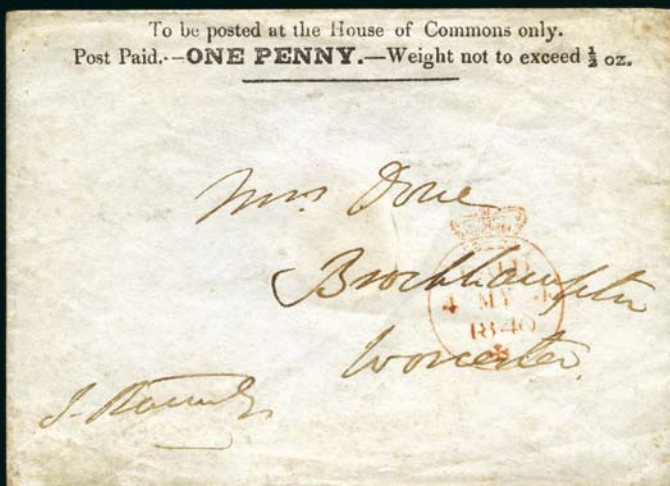 To be posted at the House of Commons only.
Post Paid.--ONE PENNY.—Weight not to exceed ½ oz.
Mrs Dove
Brockhampton
PAID
4 MY 4
1840
Worcester
J.